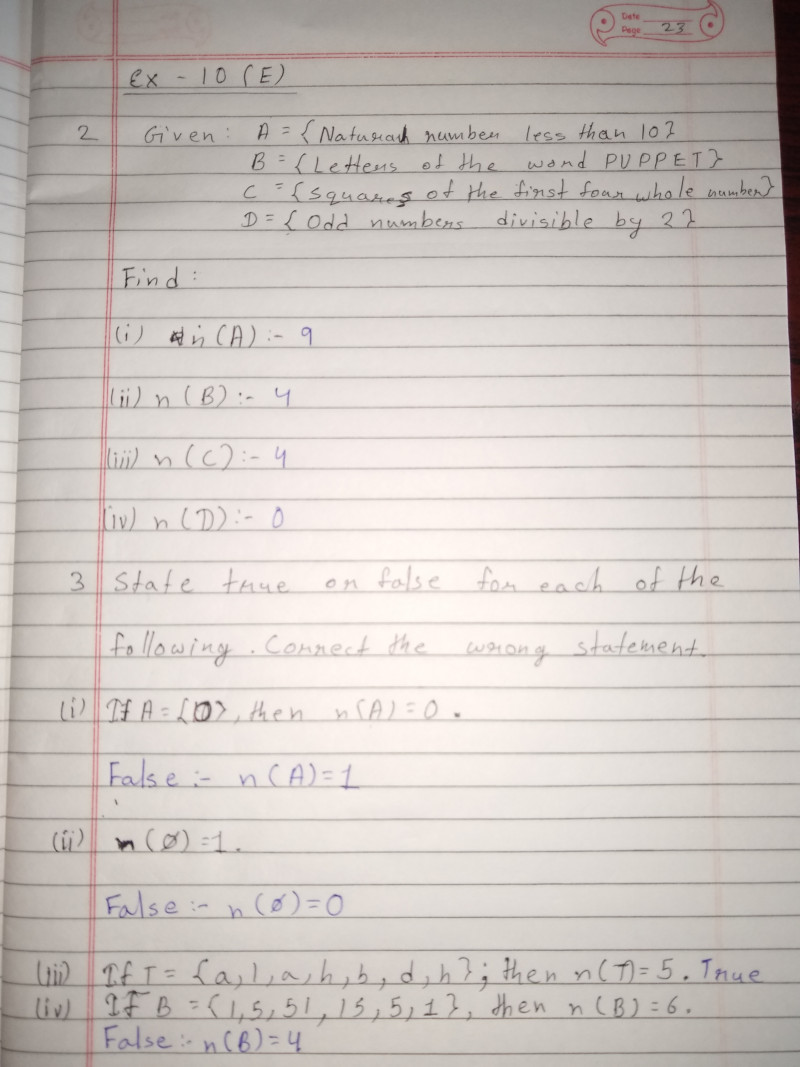 Date
Page 23
Ex - 10 (E)
2 Given: A = {Natural number less than 10}
B = {Letters of the word PUPPET}
C = {Squares of the first four whole number}
D = {Odd numbers divisible by 2}
Find :
(i) n(A) :- 9
(ii) n (B) :- 4
(iii) n (C) :- 4
(iv) n (D) :- 0
3 State true or false for each of the
following. Correct the wrong statement.
(i) If A = {0}, then n(A) = 0.
False :- n (A) = 1
(ii) n (ø) = 1.
False :- n (ø) = 0
(iii) If T = {a, l, a, h, b, d, h}; then n(T) = 5. True
(iv) If B = {1, 5, 51, 15, 5, 1}, then n (B) = 6.
False :- n(B) = 4